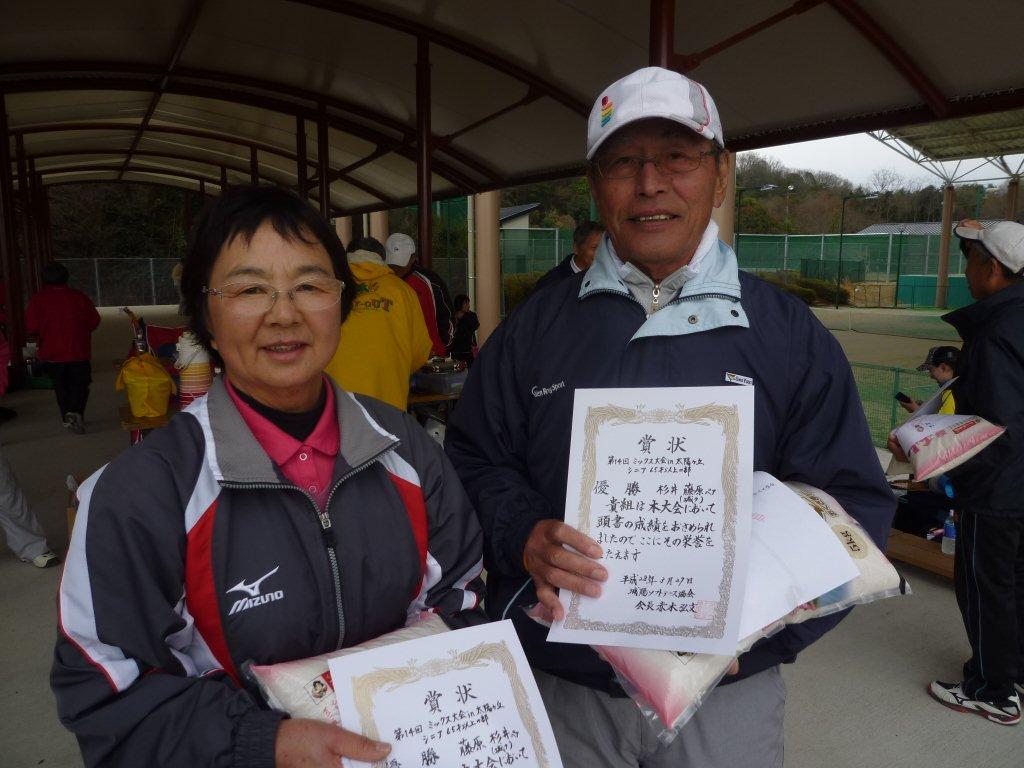 賞状
第14回 ミックス大会 in 太陽が丘
シニア 65才以上の部
優勝 杉井 藤原 ペア
(城陽)
貴組は本大会において
頭書の成績をおさめられ
ましたので ここにその栄誉を
たたえます
平成28年 3月27日
城陽ソフトテニス協会
会長 赤木 弘文
賞状
第14回 ミックス大会 in 太陽が丘
シニア 65才以上の部
優勝 藤原 杉井 ペア
(城陽)
本大会において
MIZUNO